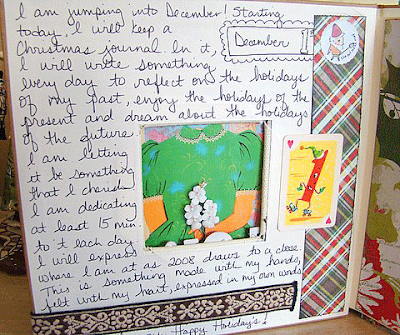 I am jumping into December! Starting
today, I will keep a
Christmas journal. In it,
I will write something
every day to reflect on the holidays
of my past, enjoy the holidays of the
present and dream about the holidays
of the future.
I am letting
it be something
that I cherish.
I am dedicating
at least 15 min.
to it each day.
I will express
where I am at as 2008 draws to a close.
This is something made with my hands,
felt with my hart, expressed in my own words
Happy Holiday's!
December 1st